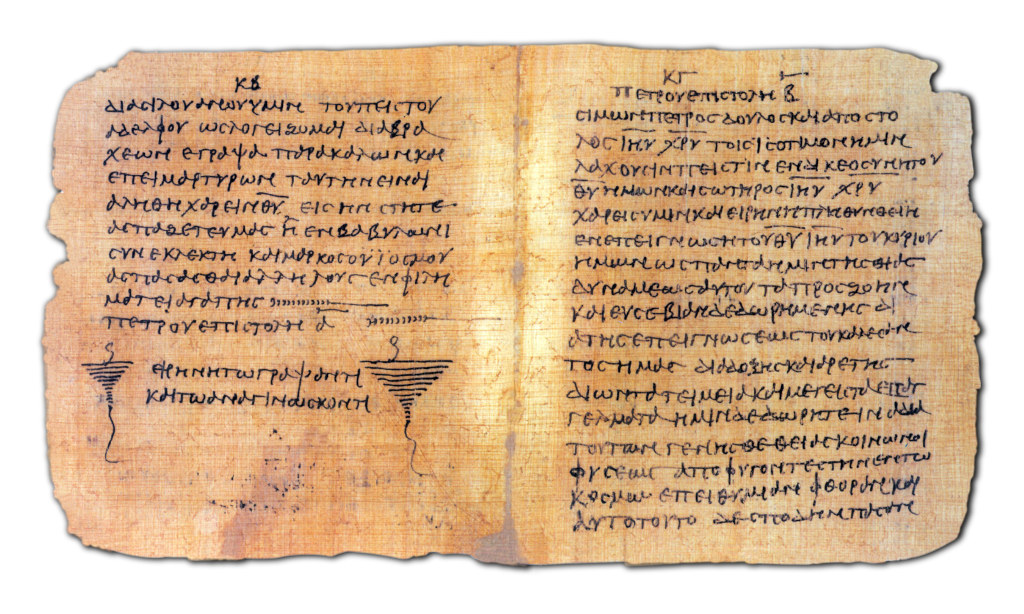 ΚΒ
διασιλουανωυμιν τουπειστου
αδελφου ωσλογειζομαι διαβρα
χεων εγραψα παρακαλωνκαι
επειμαρτυρων ταυτηνειναι
αληθηχαρειν θ̅υ̅ εισηνστητε
ασπαζετευμας η ενβαβυλωνι
συνεκλεκτη καιμαρκοσουιοσμου
ασπασασθαιαλληλους ενφιλη
ματειαγαπης
πετρουεπιστολη α̅
ειρηνητωγραψαντι
καιτωαναγινωσκοντι
ΚΓ
πετρουεπιστολη β̅
σιμωνπετρος δουλοσκαιαποστο
λος ι̅η̅υ̅ χ̅ρ̅υ̅ τοισισοτιμονημιν
λαχουσινπειστιν ενδικεοσυνητου
θ̅υ̅ ημωνκαισωτηρος ι̅η̅υ̅ χ̅ρ̅υ̅
χαρεισυμινκαιειρηνηπληθυνθειη
ενεπειγνωσητου θ̅υ̅ ι̅η̅υ̅ τουκυριου
ημων ωσπανταημιντησθιας
δυναμεωσαυτου ταπροσζωην
καιευσεβιανδεδωρημενης δι
ατησεπειγνωσεως τουκαλεσαν
τος ημας διαδοξησκαιαρετης
διωντατειμειακαιμεγεισταεπαγ
γελματα ημινδεδωρητε ιναδια
τουτων γενησθεθειασκοινωνοι
φυσεως αποφυγοντεστηνεντω
κοσμω επειθυμιαν φθορανκαι
αυτοτουτο δεσπουδηνπασαν